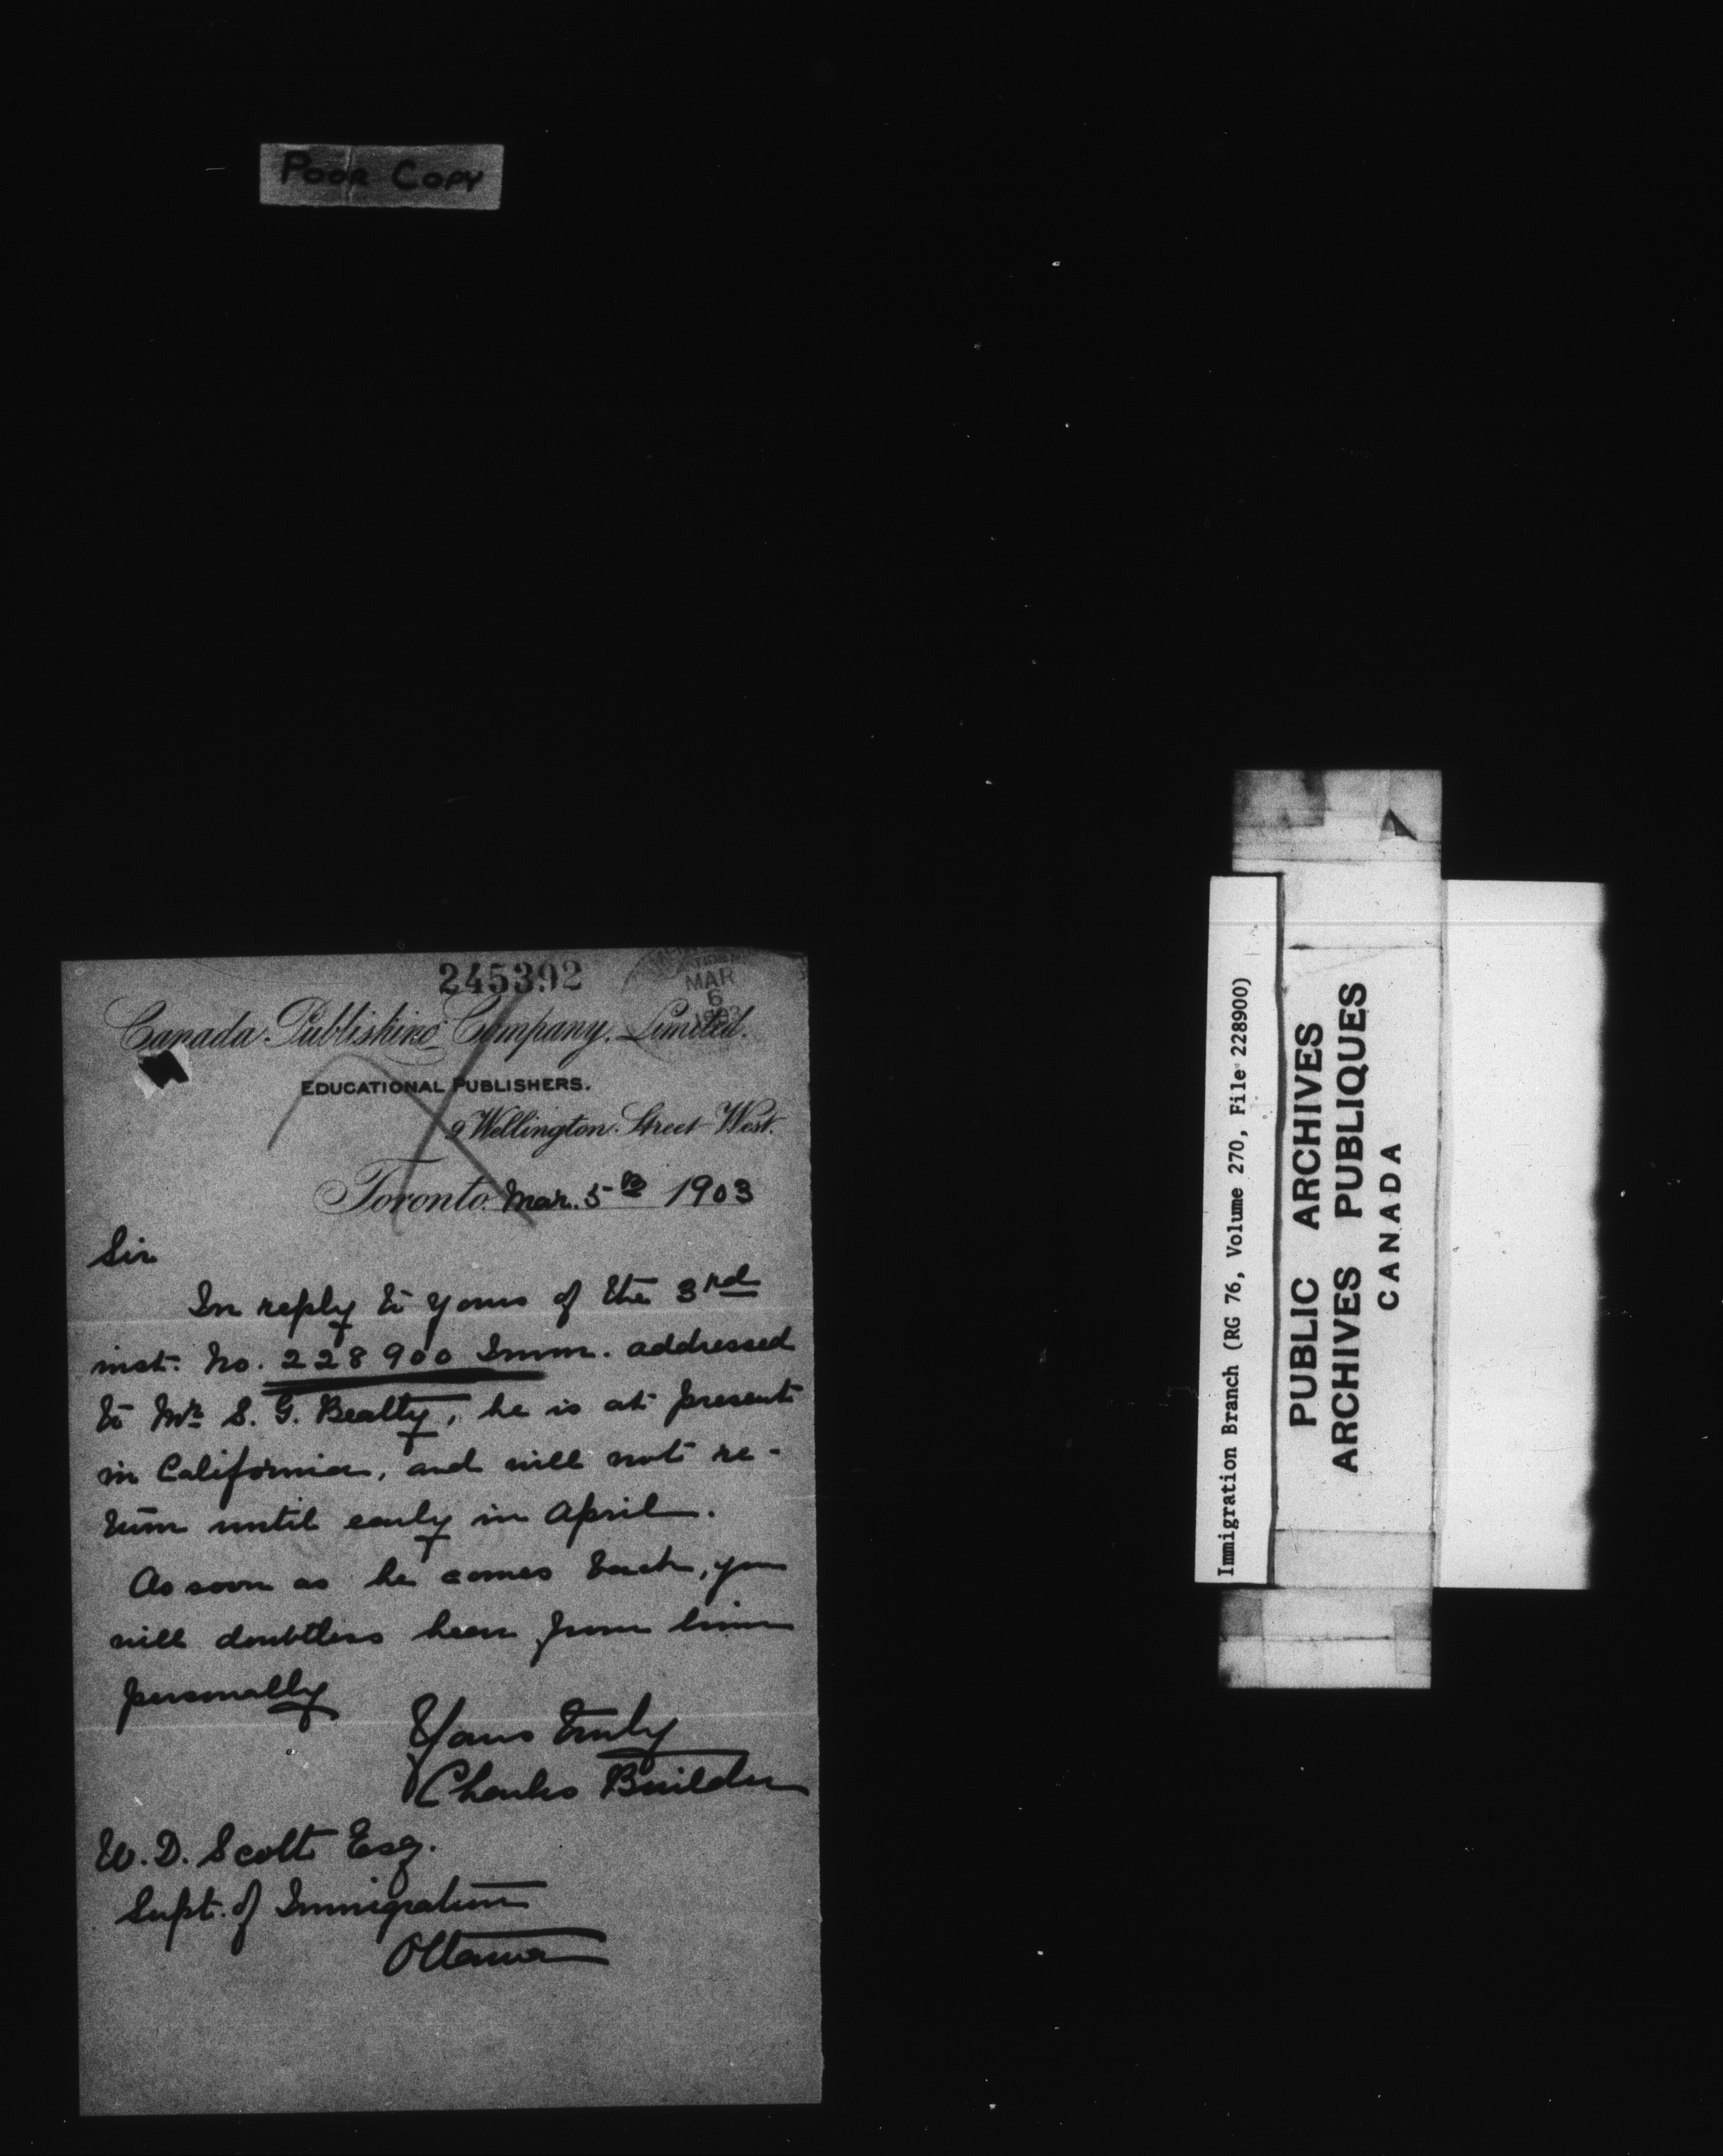 Poor Copy
245392
MAR
6
1903
Canada Publishing Company, Limited.
EDUCATIONAL PUBLISHERS.
9 Wellington Street West.
Toronto. Mar. 5th 1903
Sir
In reply to yours of the 3rd
inst. No. 228900 Imm. addressed
to Mr S. G. Beatty, he is at present
in California, and will not re-
turn until early in April.
As soon as he comes back, you
will doubtless hear from him
personally
Yours truly
Charles Builder
W. D. Scott Esq.
Supt. of Immigration
Ottawa
Immigration Branch (RG 76, Volume 270, File 228900)
PUBLIC ARCHIVES
ARCHIVES PUBLIQUES
CANADA